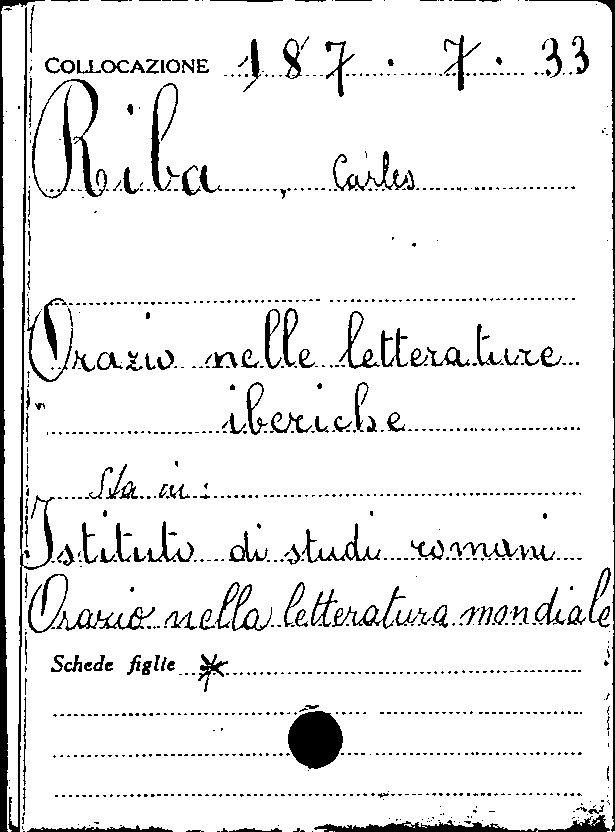 COLLOCAZIONE 187 . 7 . 33
Riba , Carles
Orazio nelle letterature
iberiche
Sta in :
Istituto di studi romani
Orazio nella letteratura mondiale
Schede figlie *